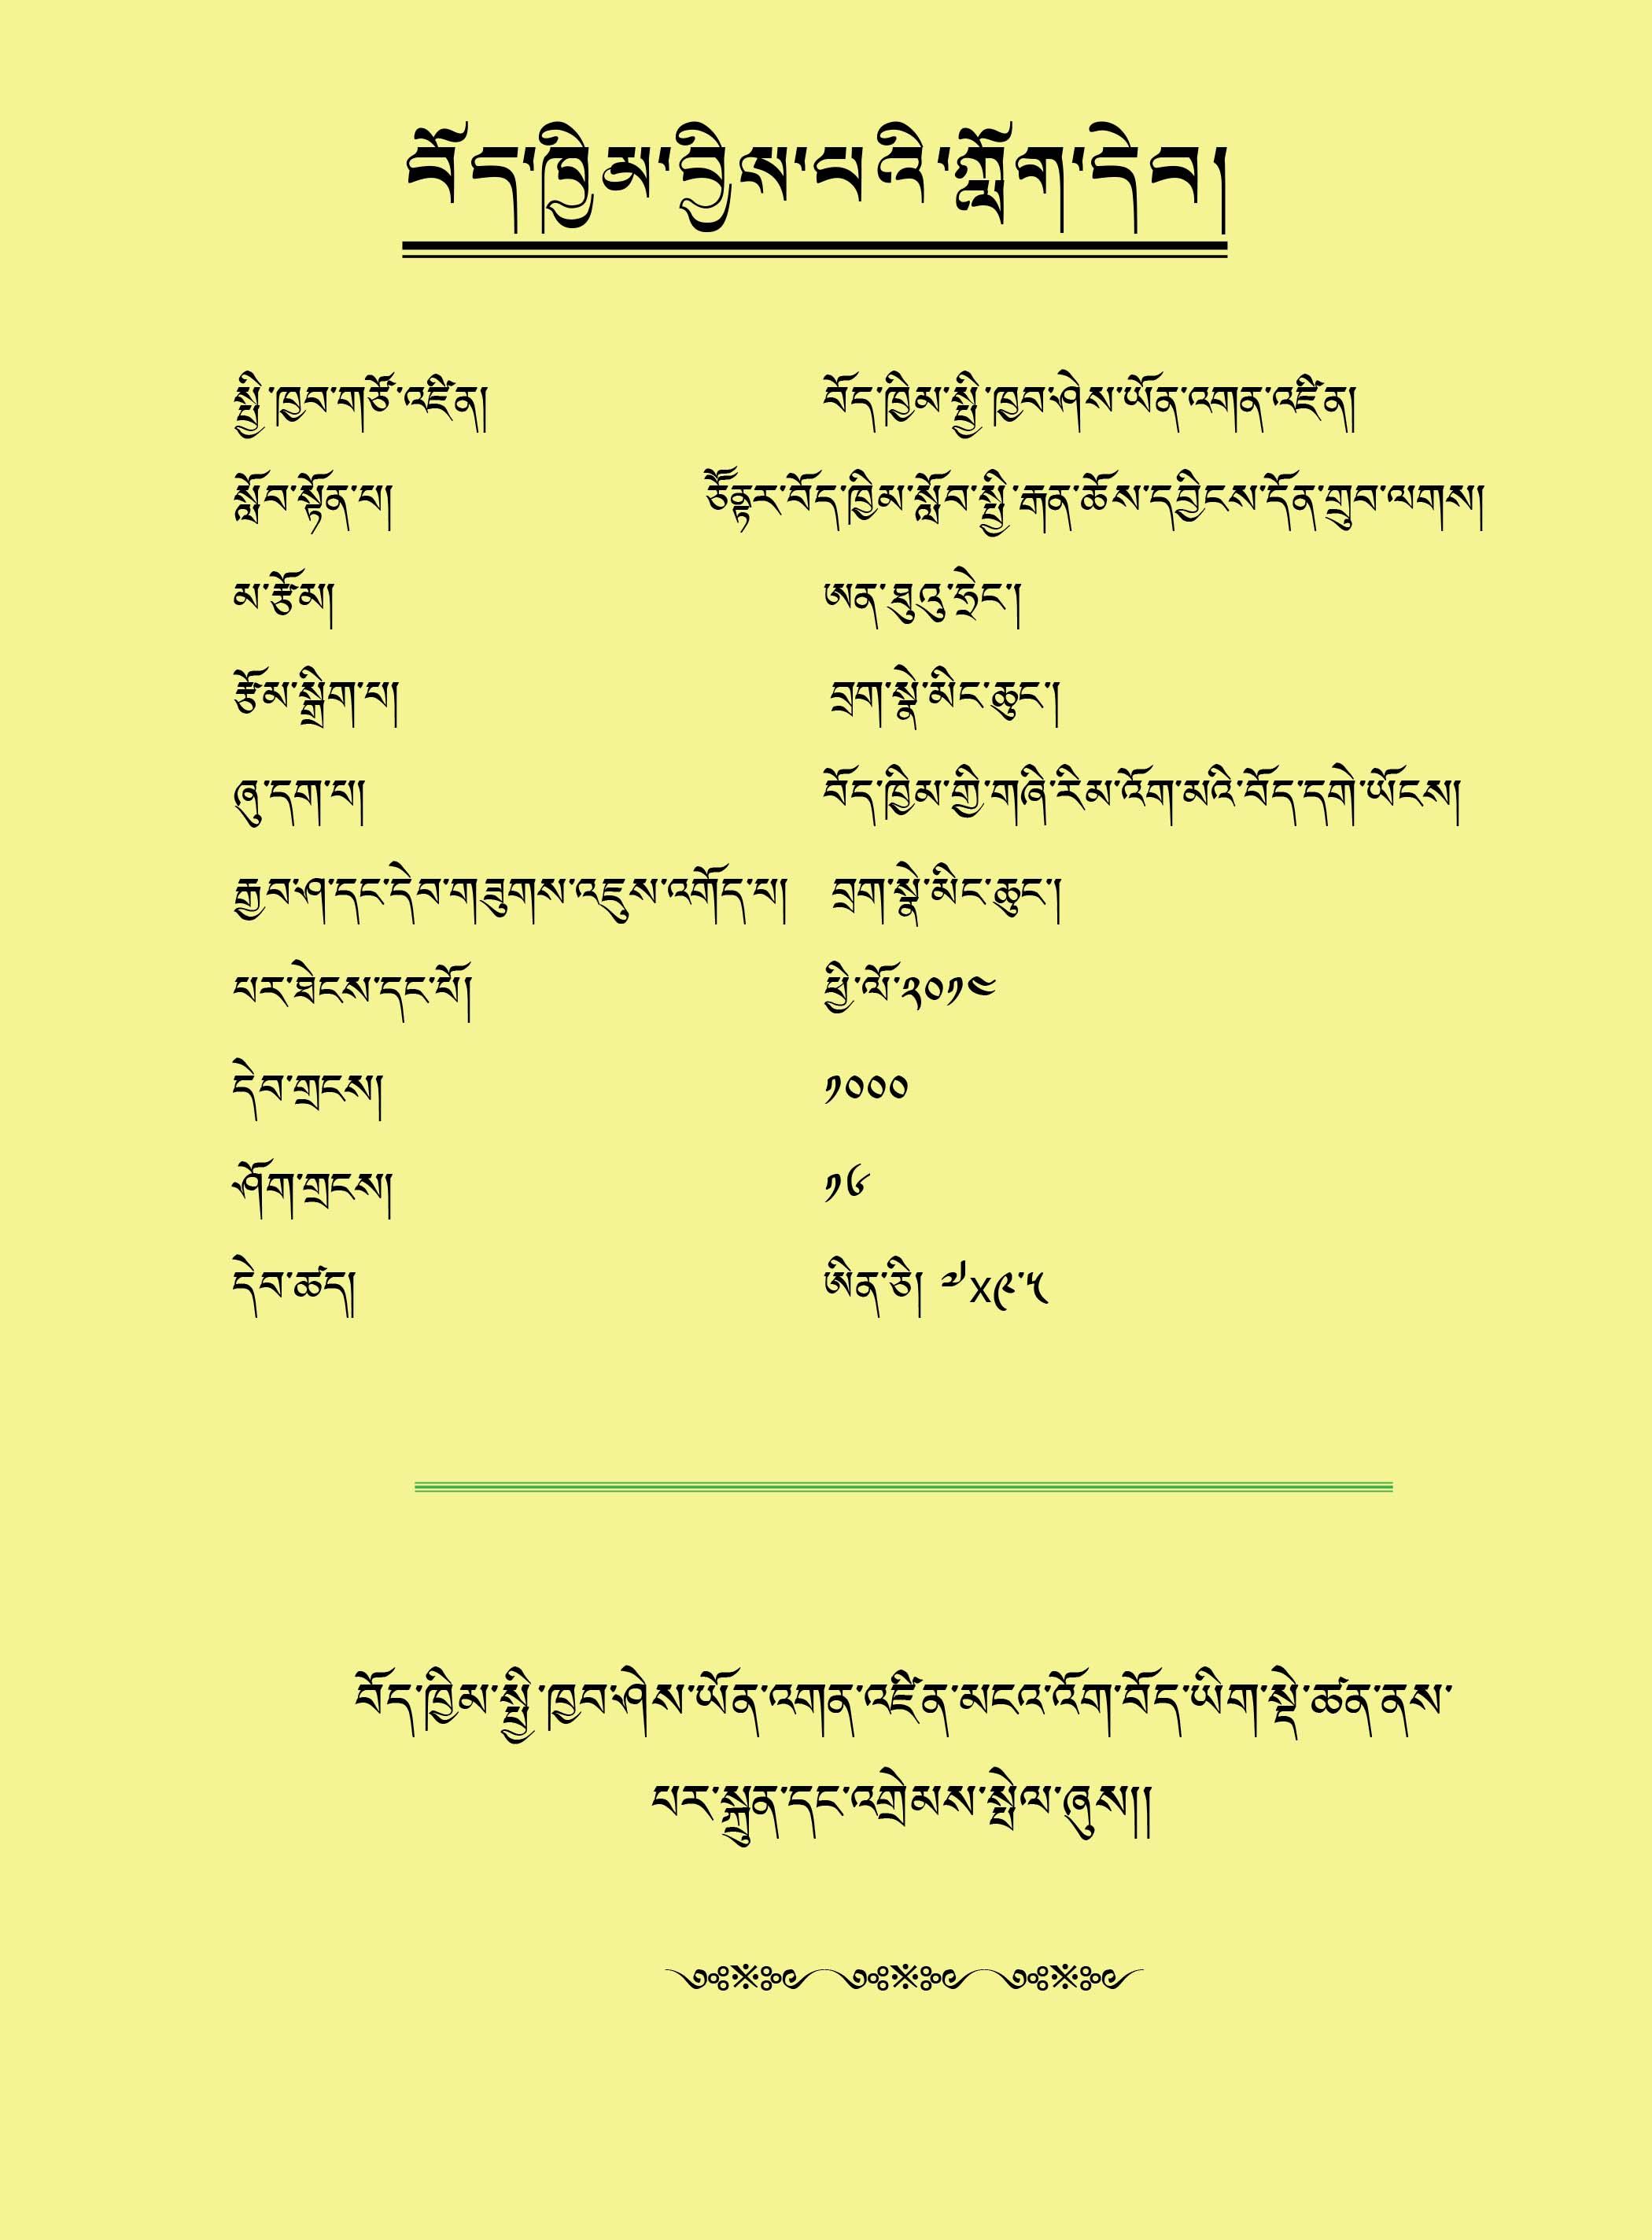 བོད་ཁྱིམ་བྱིས་པའི་ཀློག་དེབ།
སྤྱི་ཁྱབ་གཙོ་འཛིན། བོད་ཁྱིམ་སྤྱི་ཁྱབ་ཤེས་ཡོན་འགན་འཛིན།
སློབ་སྟོན་པ། ཙོནྟར་བོད་ཁྱིམ་སློབ་སྤྱི་རྒན་ཆོས་དབྱིངས་དོན་གྲུབ་ལགས།
མ་རྩོམ། ཨན་ཐུའུ་ཧྲེང་།
རྩོམ་སྒྲིག་པ། བྲག་སྣེ་མིང་ཆུང་།
ཞུ་དག་པ། བོད་ཁྱིམ་གྱི་གཞི་རིམ་འོག་མའི་བོད་དགེ་ཡོངས།
རྒྱབ་ཤ་དང་དེབ་གཟུགས་འཇུས་འགོད་པ། བྲག་སྣེ་མིང་ཆུང་།
པར་ཐེངས་དང་པོ། ཕྱི་ལོ་༢༠༡༤
དེབ་གྲངས། ༡༠༠༠
ཤོག་གྲངས། ༡༦
དེབ་ཚད། ཨིན་ཅི། ༧x༩་༥
བོད་ཁྱིམ་སྤྱི་ཁྱབ་ཤེས་ཡོན་འགན་འཛིན་མངའ་འོག་བོད་ཡིག་སྡེ་ཚན་ནས་
པར་སྐྲུན་དང་འགྲེམས་སྤེལ་ཞུས།།